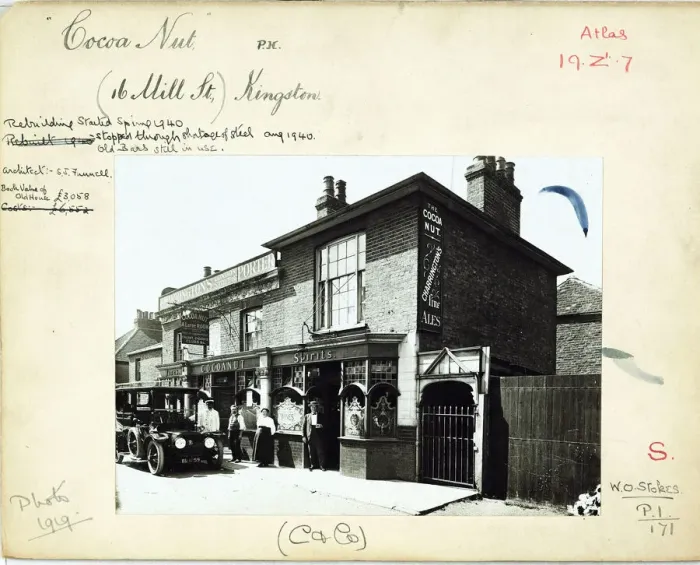 "Cocoa Nut," P.H.
(16 Mill St,) Kingston.
Atlas
19. Z'. 7
Rebuilding Started Spring 1940
Rebuilt 1940 Stopped through shortage of steel aug 1940.
Old Bars still in use.
Architect:- S.J. Funnell.
Book Value of
Old House £3,058
£6,552
THE
COCOA
NUT.
CHARRINGTON'S
Fine
ALES
PORTER
COCOANUT
COCOANUT
Spirits.
S.
W.O. Stokes
P.1.
171
Photo
1919.
(C & Co)